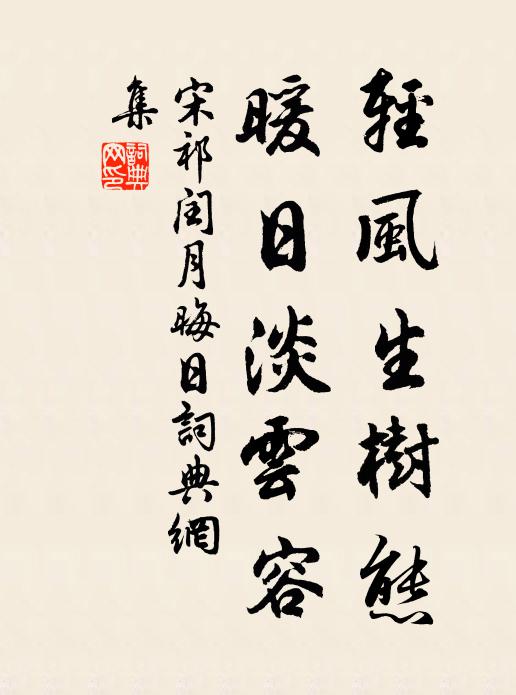 輕風生樹態
暖日淡雲容
宋祁閏月晦日詞典網
集
詞典
网印